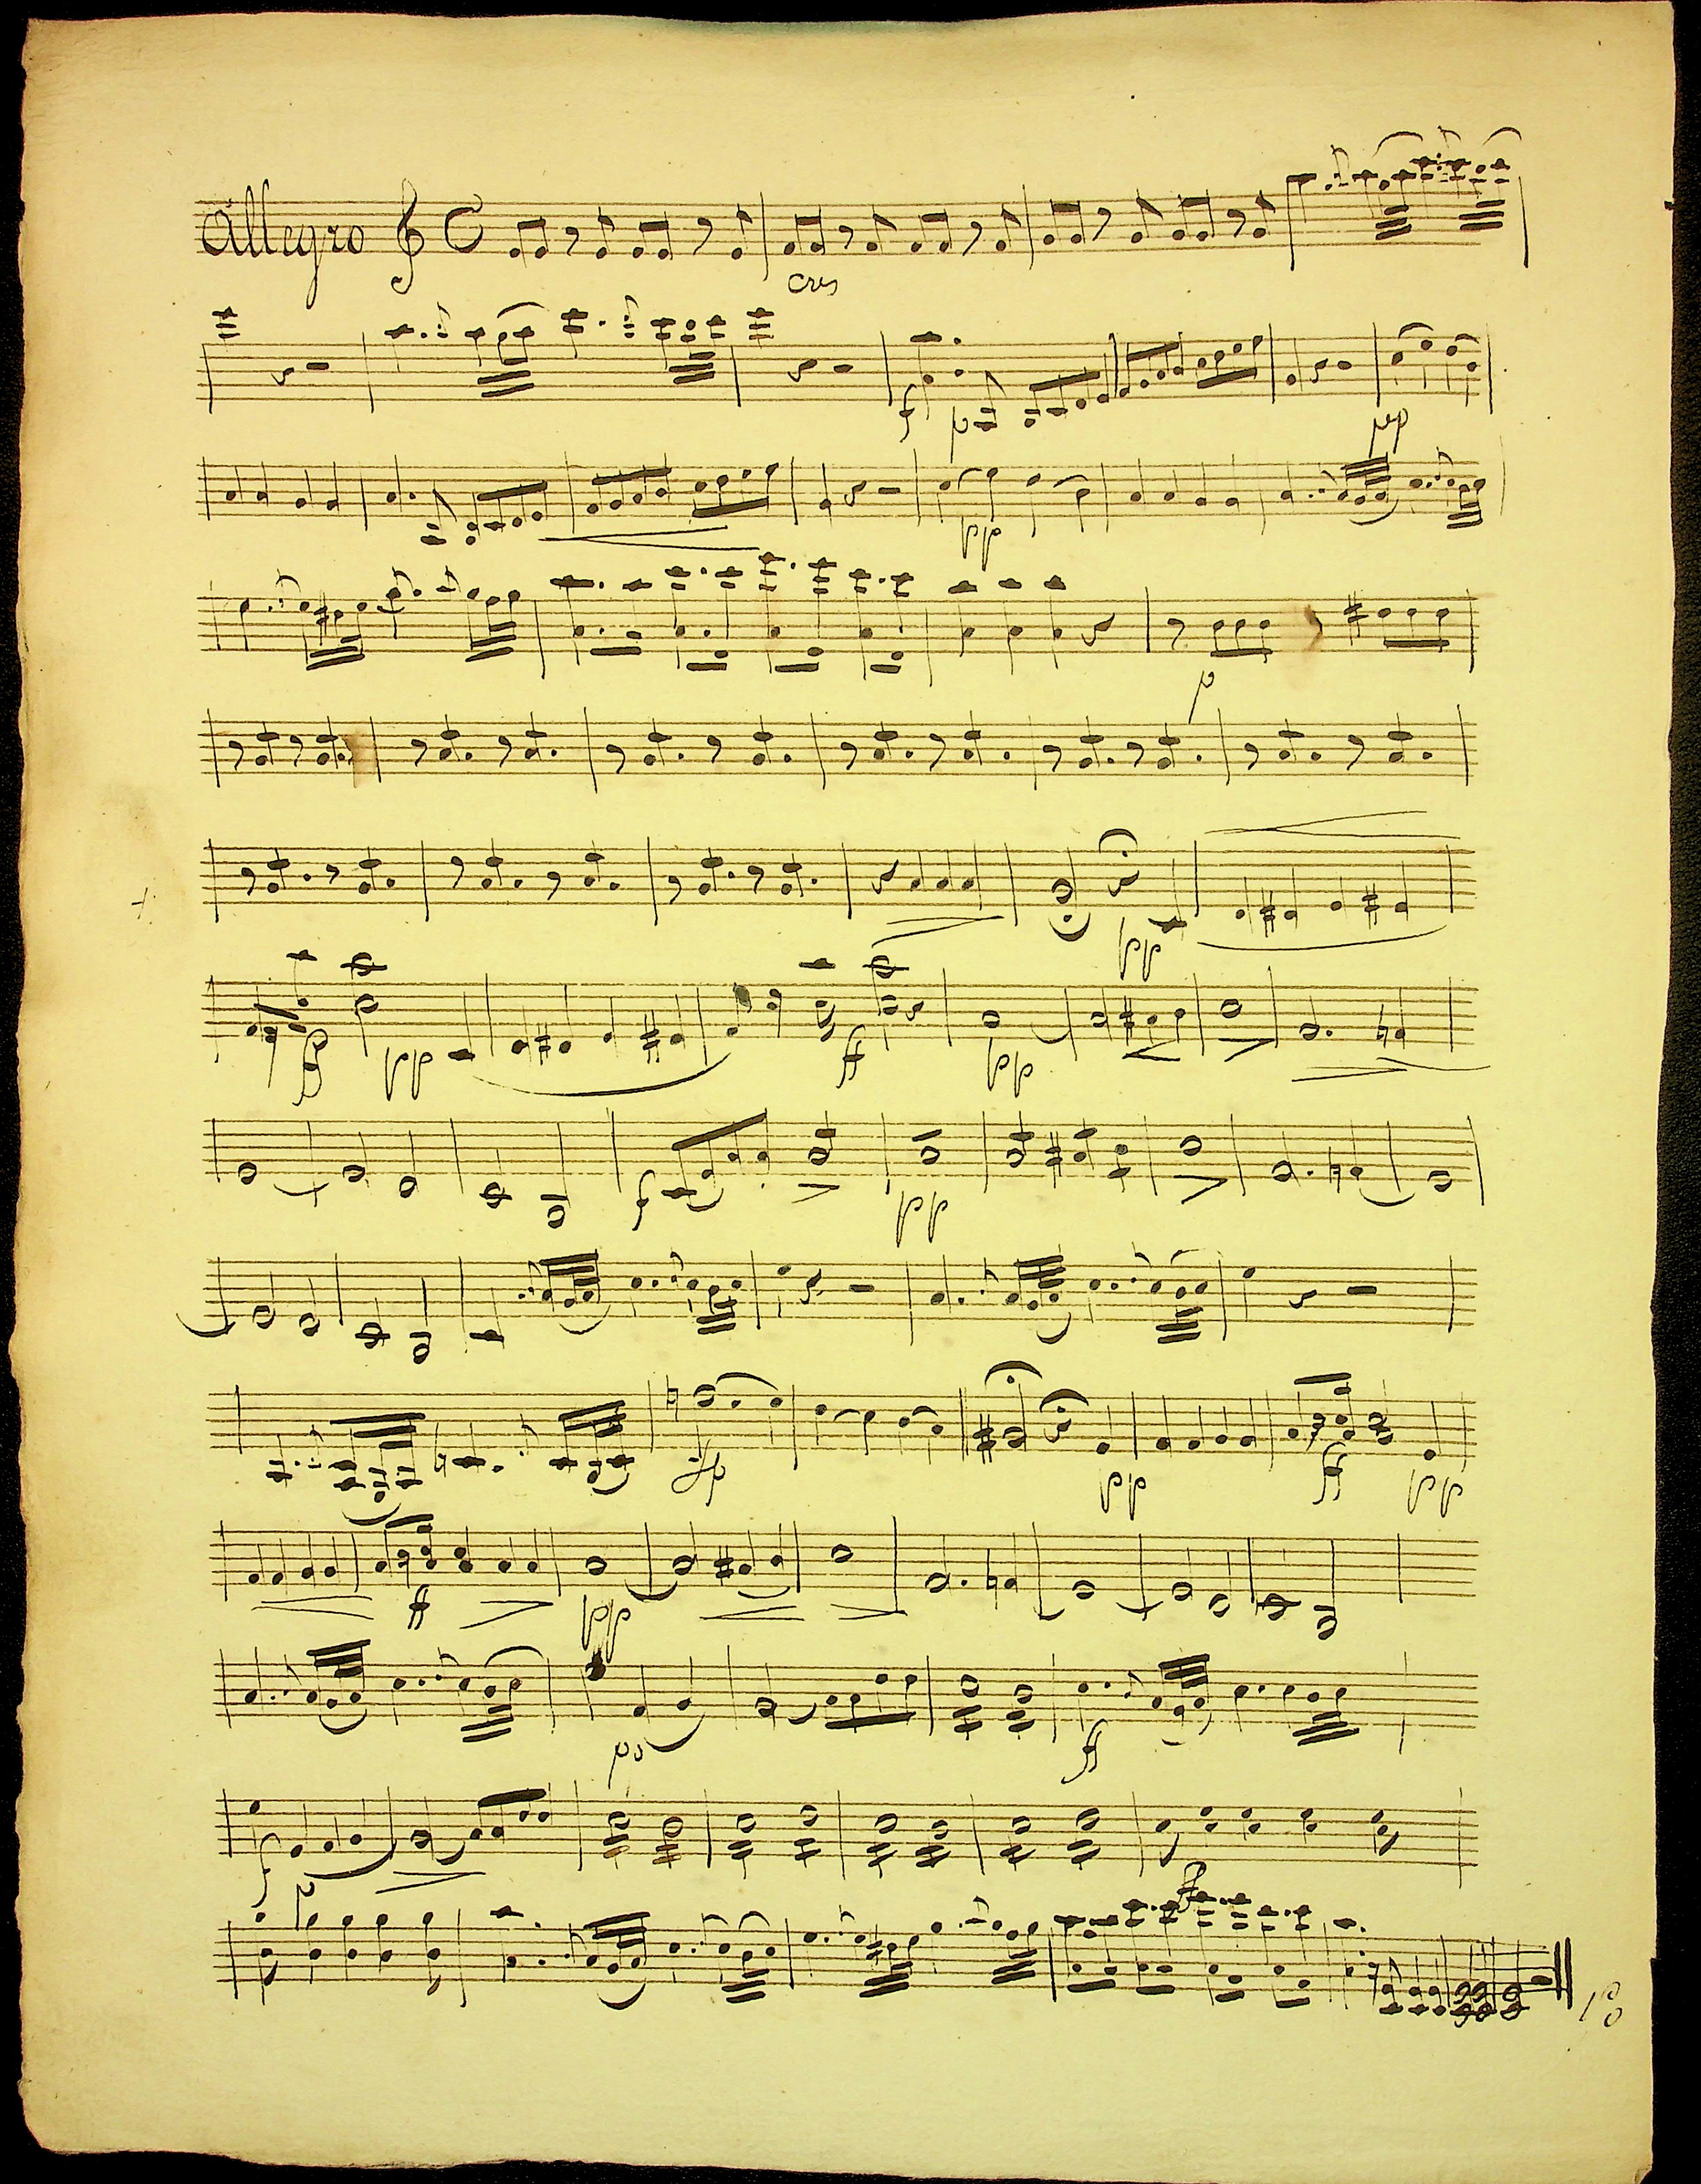 Allegro
cres
f p pp
pp
p
pp
ff pp ff pp
f pp
fp pp ff pp
ff pp
pp ff
f p
f